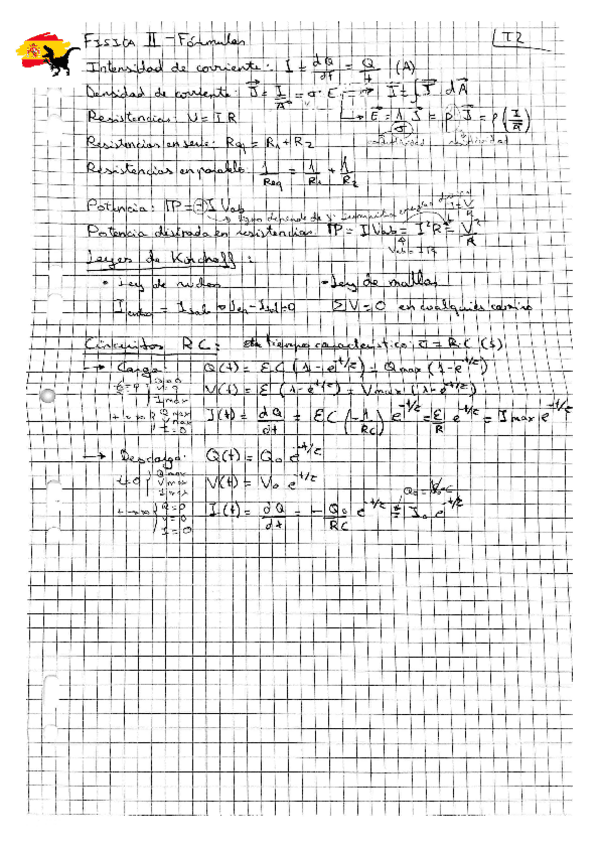 FISICA II - Fórmulas T2
Intensidad de corriente: I = dQ/dt = Q/t (A)
Densidad de corriente: J = I/A = σ·E → I = ∫ J dA
Resistencias: V = I R → E = 1/σ J = ρ J = ρ (I/A)
Resistencias en serie: Req = R1 + R2
Resistencias en paralelo: 1/Req = 1/R1 + 1/R2
Potencia: P = I Vab
signo depende de si
Potencia disipada en resistencias: P = I Vab = I²R = V²/R
Vab = I R
Leyes de Kirchoff:
• Ley de nudos • Ley de mallas
ΣV = 0 en cualquier camino
Circuitos RC: tiempo característico: τ = R·C (s)
→ Carga: Q(t) = εC (1-e^-t/τ) = Qmax (1-e^-t/τ)
V(t) = ε (1-e^-t/τ) = Vmax (1-e^-t/τ)
I(t) = dQ/dt = εC (-1/RC) e^-t/τ = ε/R e^-t/τ = Imax e^-t/τ
→ Descarga: Q(t) = Q0 e^-t/τ
V(t) = V0 e^-t/τ
I(t) = dQ/dt = - Q0/RC e^-t/τ = I0 e^-t/τ